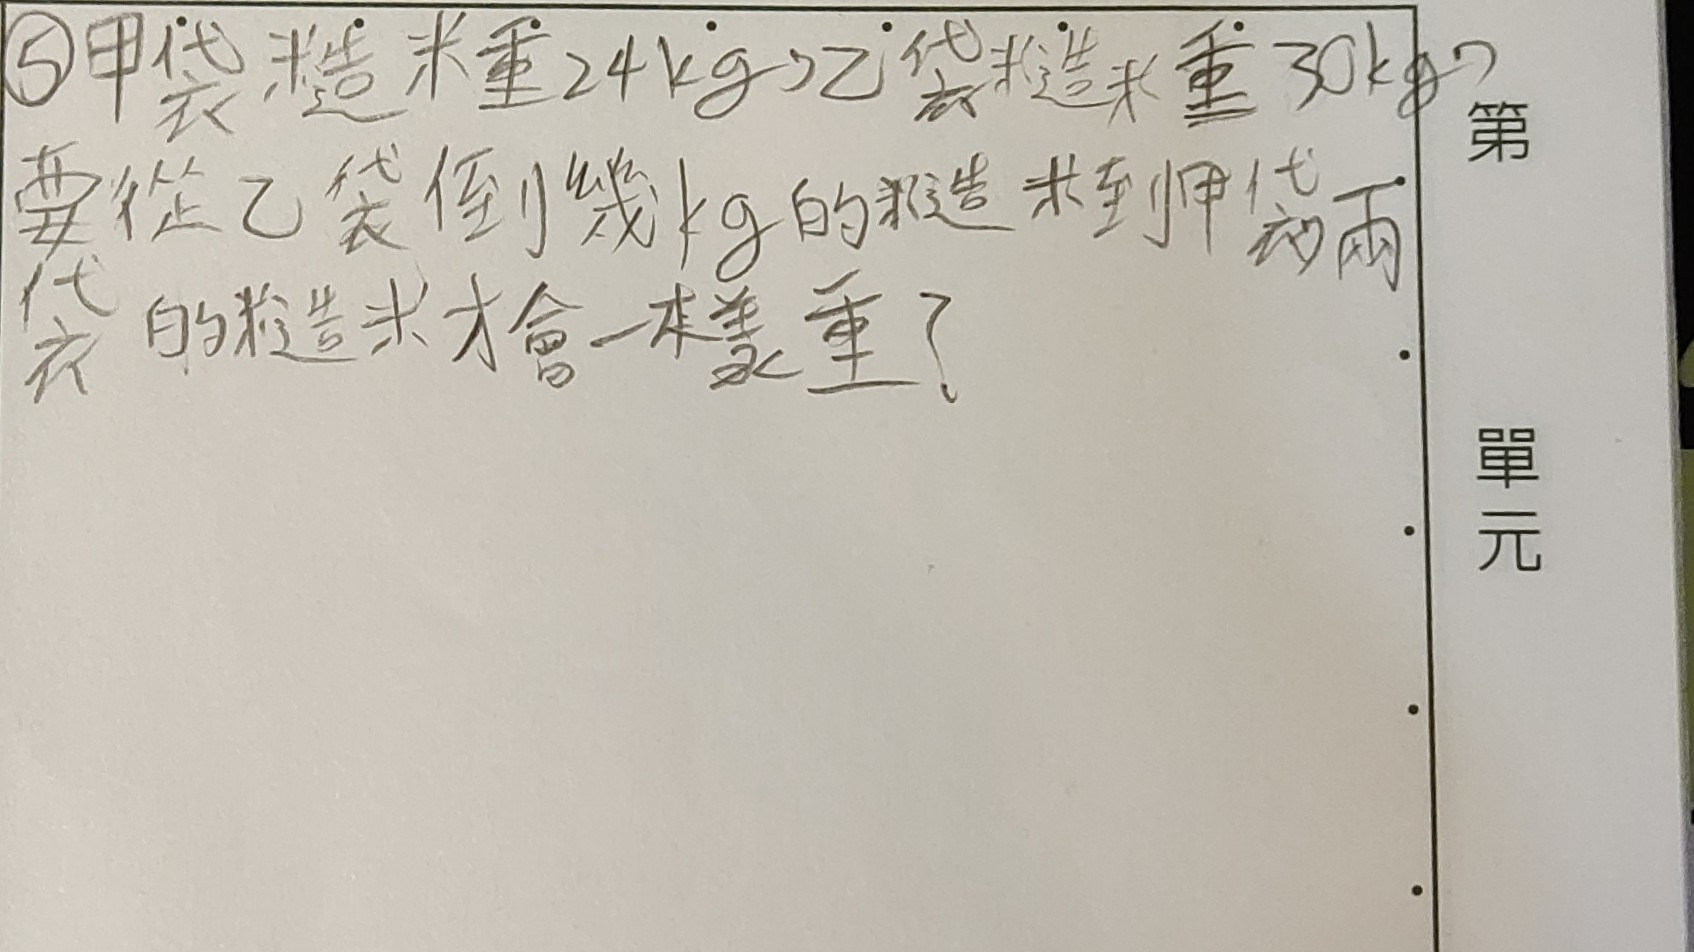 ⑤甲袋糙米重24kg,乙袋糙米重30kg,
要從乙袋倒幾kg的糙米到甲袋兩
袋的糙米才會一樣重?
第
單
元